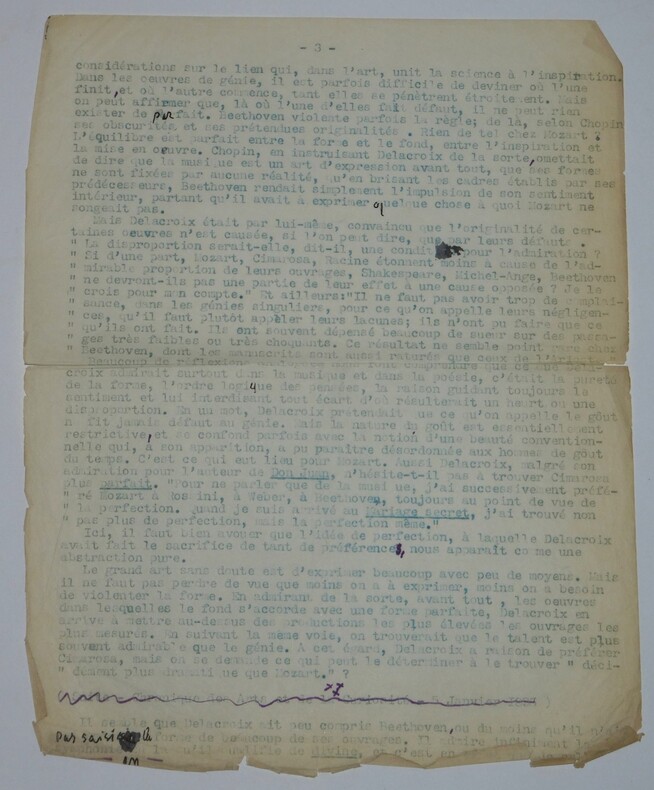 - 3 -
considérations sur le lien qui, dans l'art, unit la science à l'inspiration.
Dans les oeuvres de génie, il est parfois difficile de deviner où l'une
finit, et où l'autre commence, tant elles se pénètrent étroitement. Mais
on peut affirmer que, là où l'une d'elles fait défaut, il ne peut rien
exister de parfait. Beethoven violente parfois la règle; de là, selon Chopin
ses obscurités et ses prétendues originalités . Rien de tel chez Mozart ?
L'équilibre est parfait entre la forme et le fond, entre l'inspiration et
la mise en oeuvre. Chopin, en instruisant Delacroix de la sorte, omettait
de dire que la musique est un art d'expression avant tout, que ses formes
ne sont fixées par aucune réalité, qu'en brisant les cadres établis par ses
prédécesseurs, Beethoven rendait simplement l'impulsion de son sentiment
intérieur, partant qu'il avait à exprimer quelque chose à quoi Mozart ne
songeait pas.
Mais Delacroix était par lui-même, convaincu que l'originalité de cer-
taines oeuvres n'est causée, si l'on peut dire, que par leurs défauts .
" La disproportion serait-elle, dit-il, une condit pour l'admiration ?
" Si d'une part, Mozart, Cimarosa, Racine étonnent moins à cause de l'ad-
" mirable proportion de leurs ouvrages, Shakespeare, Michel-Ange, Beethoven
" ne devront-ils pas une partie de leur effet à une cause opposée ? Je le
" crois pour mon compte." Et ailleurs:"Il ne faut pas avoir trop de complai-
" sance, dans les génies singuliers, pour ce qu'on appelle leurs négligen-
" ces, qu'il faut plutôt appeler leurs lacunes; ils n'ont pu faire que ce
" qu'ils ont fait. Ils ont souvent dépensé beaucoup de sueur sur des passa-
" ges très faibles ou très choquants. Ce résultat ne semble point rare chez
" Beethoven, dont les manuscrits sont aussi raturés que ceux de l'Arioste
Beaucoup de réflexions font comprendre que ce que Dela-
croix admirait surtout dans la musique et dans la poésie, c'était la pureté
de la forme, l'ordre logique des pensées, la raison guidant toujours le
sentiment et lui interdisant tout écart d'où résulterait un heurt ou une
disproportion. En un mot, Delacroix prétendait que ce qu'on appelle le goût
n fit jamais défaut au génie. Mais la nature du goût est essentiellement
restrictive, et se confond parfois avec la notion d'une beauté convention-
nelle qui, à son apparition, a pu paraître désordonnée aux hommes de goût
du temps. C'est ce qui est lieu pour Mozart. Aussi Delacroix, malgré son
admiration pour l'auteur de Don Juan, n'hésite-t-il pas à trouver Cimarosa
plus parfait. "Pour ne parler que de la musique, j'ai successivement préfé-
" ré Mozart à Rossini, à Weber, à Beethoven, toujours au point de vue de
" la perfection. Quand je suis arrivé au Mariage secret, j'ai trouvé non
" pas plus de perfection, mais la perfection même."
Ici, il faut bien avouer que l'idée de perfection, à laquelle Delacroix
avait fait le sacrifice de tant de préférences, nous apparaît comme une
abstraction pure.
Le grand art sans doute est d'exprimer beaucoup avec peu de moyens. Mais
il ne faut pas perdre de vue que moins on a à exprimer, moins on a besoin
de violenter la forme. En admirant de la sorte, avant tout , les oeuvres
dans lesquelles le fond s'accorde avec une forme parfaite, Delacroix en
arrive à mettre au-dessus des productions les plus élevées les ouvrages les
plus mesurés. En suivant la même voie, on trouverait que le talent est plus
souvent admirable que le génie. A cet égard, Delacroix a raison de préférer
Cimarosa, mais on se demande ce qui peut le déterminer à le trouver " déci-
" dément plus dramatique que Mozart." ?
Chronique des Arts Janvier
Il semble que Delacroix ait peu compris Beethoven, ou du moins qu'il n'ait
pas saisi la forme de beaucoup de ses ouvrages. Il admire infiniment
qu'il qualifie de divine, et c'est en